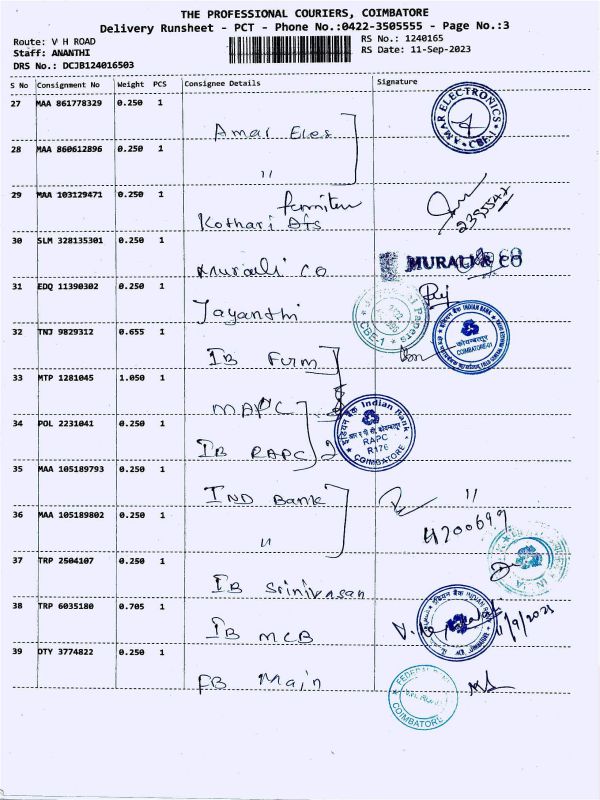 THE PROFESSIONAL COURIERS, COIMBATORE
Delivery Runsheet - PCT - Phone No.:0422-3505555 - Page No.:3
Route: V H ROAD
RS No.: 1240165
Staff: ANANTHI
RS Date: 11-Sep-2023
DRS No.: DCJB124016503
S No Consignment No Weight PCS Consignee Details Signature
27 MAA 861778329 0.250 1
Amar Eles
AMAR ELECTRONICS * CBE-1 *
28 MAA 860612896 0.250 1
"
29 MAA 103129471 0.250 1
Kothari
30 SLM 328135301 0.250 1
Murali co MURALI & CO
31 EDQ 11390302 0.250 1
Jayanthi
Papers CBE-1
32 TNJ 9829312 0.655 1
IB Firm
INDIAN BANK COIMBATORE
33 MTP 1281045 1.050 1
MAPC
34 POL 2231041 0.250 1
IB RAPC
इंडियन बैंक Indian Bank
RAPC
R176
COIMBATORE
35 MAA 105189793 0.250 1
IND Bank "
36 MAA 105189802 0.250 1
" 4200699
37 TRP 2504107 0.250 1
IB Srinivasan
38 TRP 6035180 0.705 1
IB MCB
इंडियन बैंक INDIAN BANK
11/9/2023
39 OTY 3774822 0.250 1
FB Main
FEDERAL
COIMBATORE